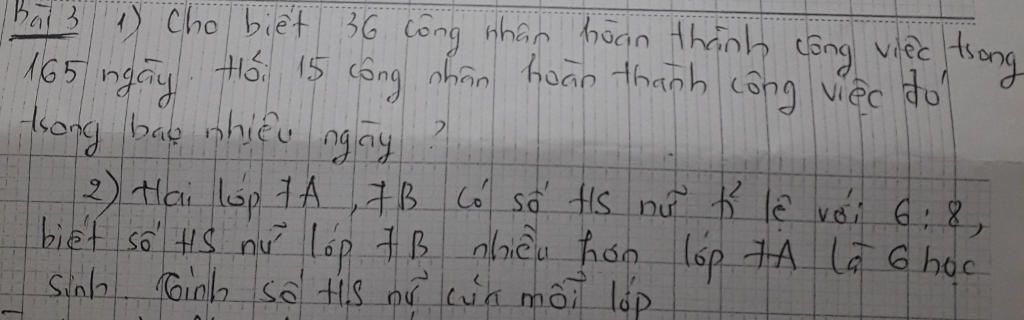 Bài 3 1) Cho biết 36 công nhân hoàn thành công việc trong
165 ngày. Hỏi 15 công nhân hoàn thành công việc đó
trong bao nhiêu ngày ?
2) Hai lớp 7A, 7B có số HS nữ tỉ lệ với 6:8,
biết số HS nữ lớp 7B nhiều hơn lớp 7A là 6 học
sinh. Tính số HS nữ của mỗi lớp